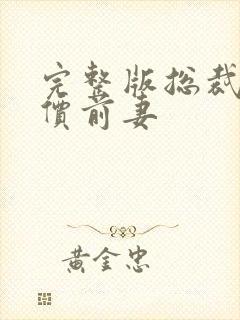 完整版总裁
價前妻
黃金忠